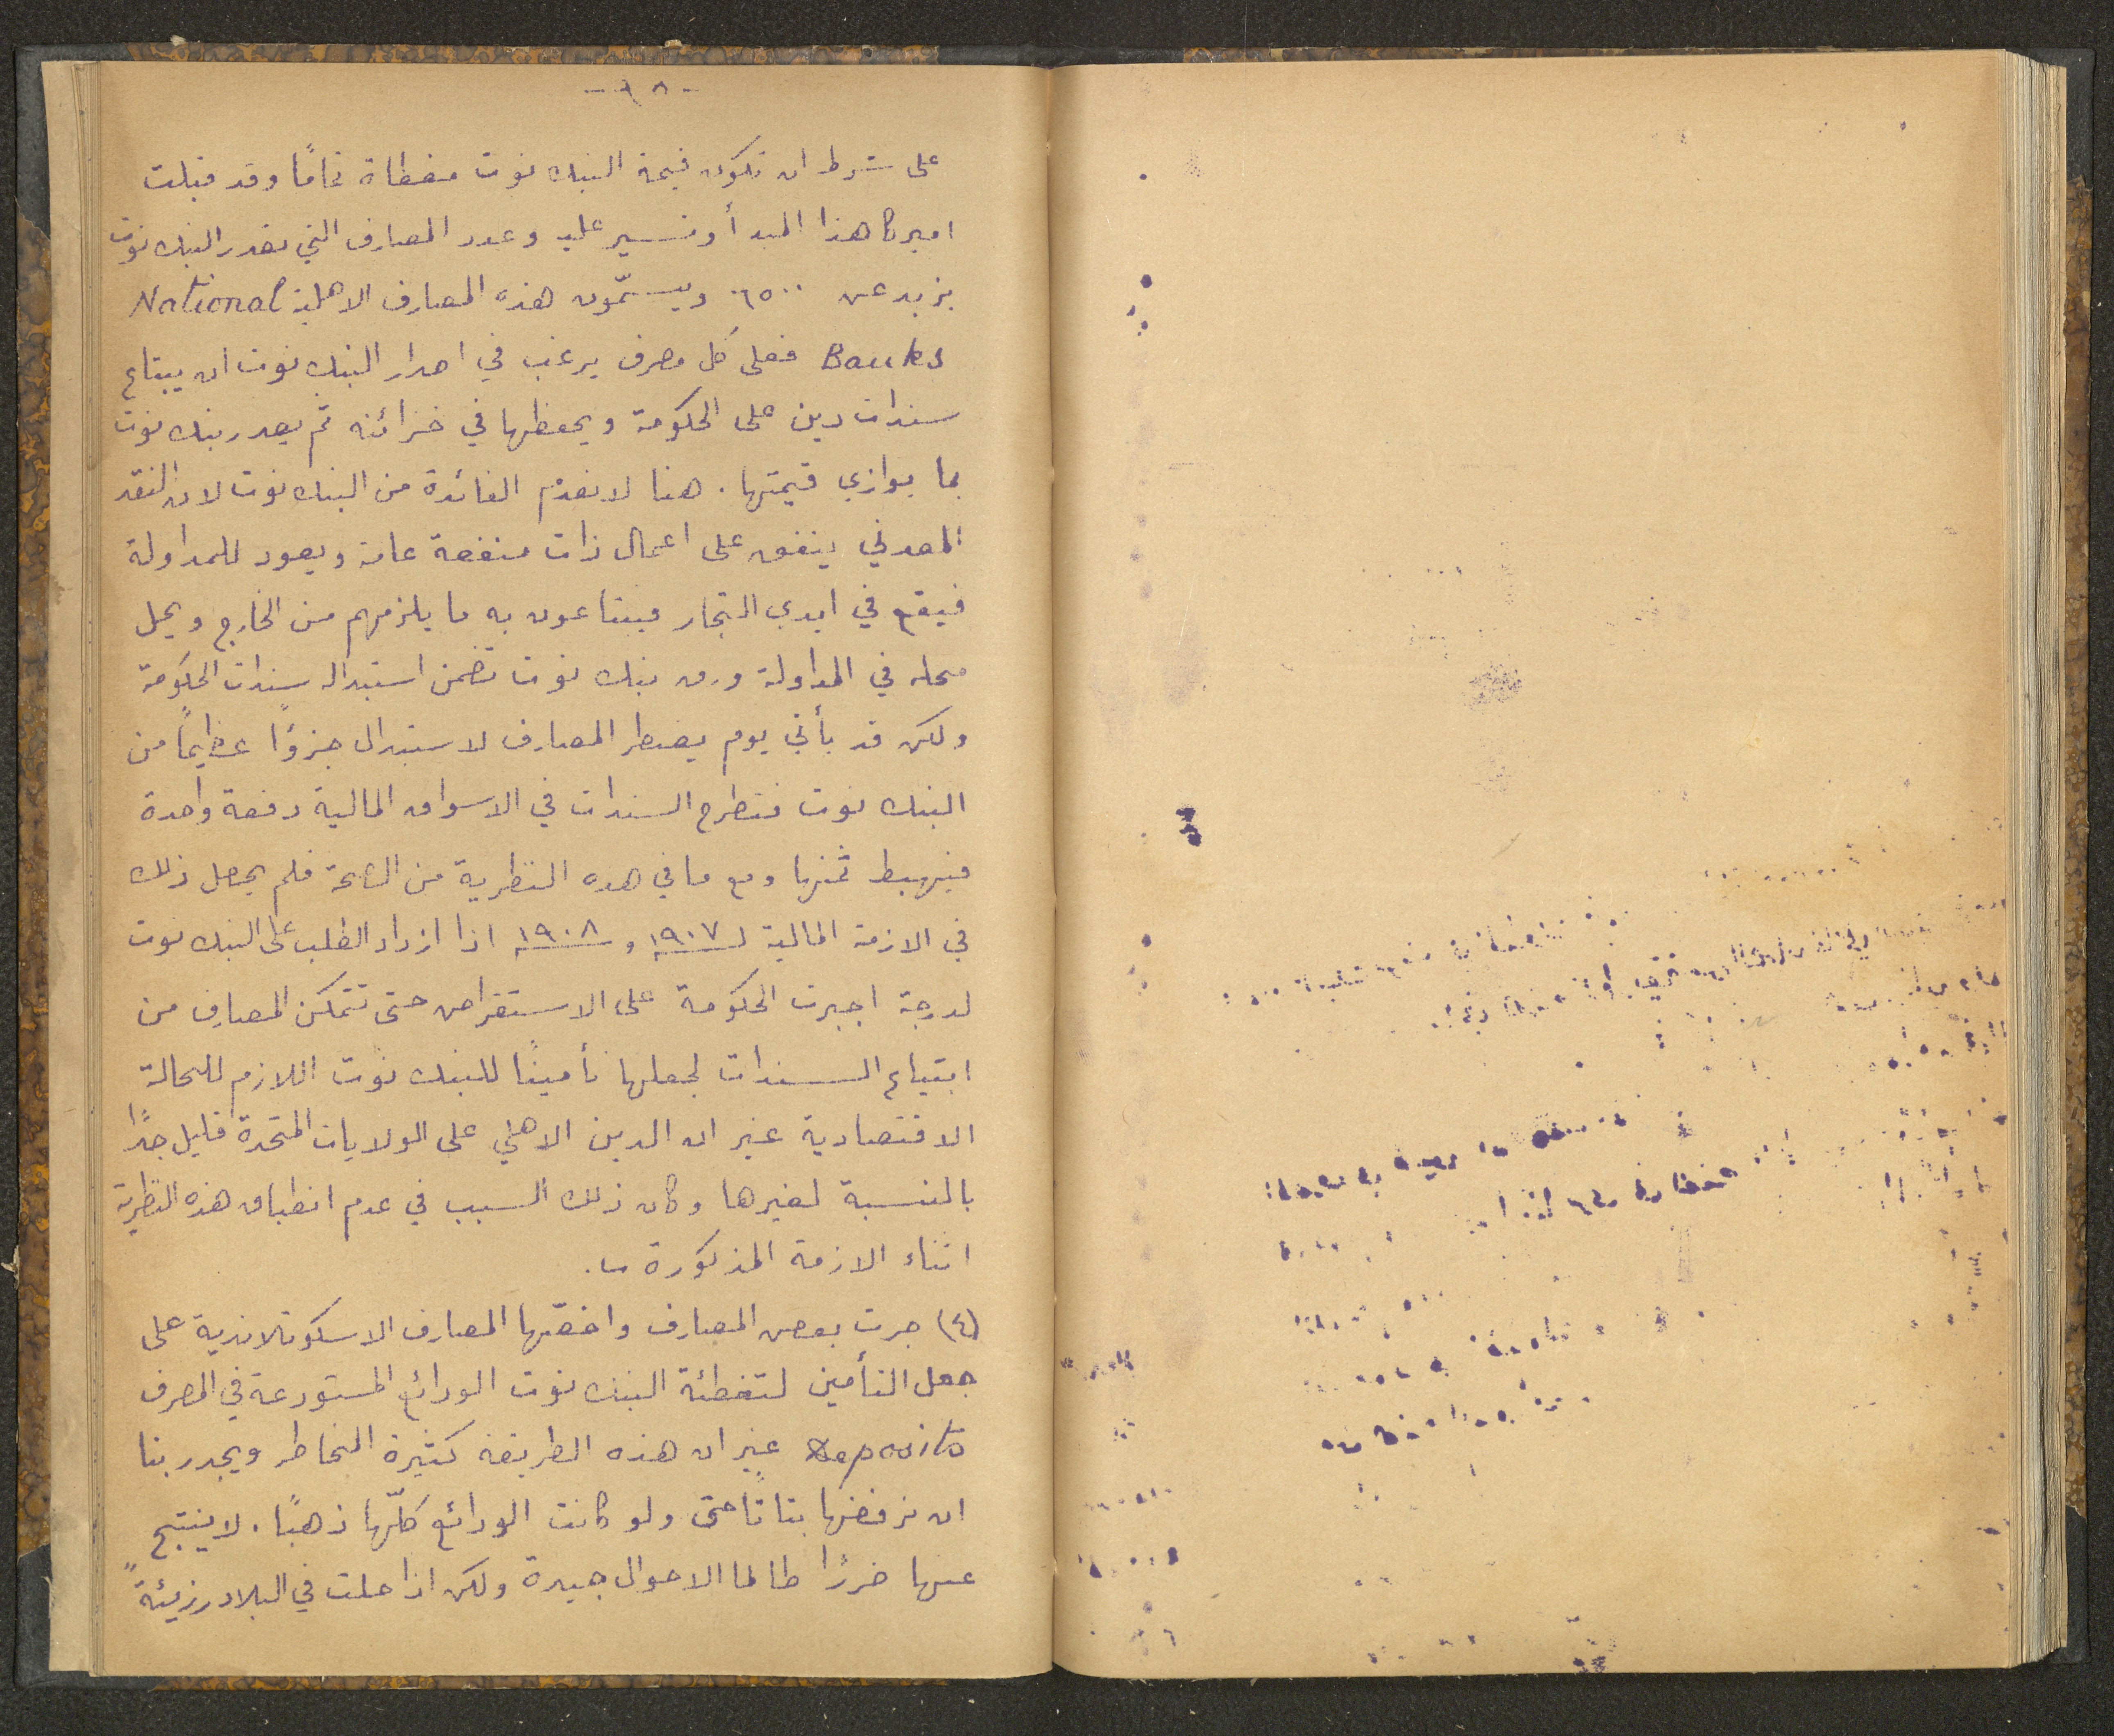 - ٩٨ -
على شرط ان تكون قيمة البنك نوت مغطاة تمامًا وقد قبلت
اميركا هذا المبدأ وتسير عليه وعدد المصارف التي تصدر البنك نوت
يزيد عن ٦٥٠٠ ويسمّون هذه المصارف الاهلية National
Banks فعلى كل مصرف يرغب في اصدار البنك نوت ان يبتاع
سندات دين على الحكومة ويحفظها في خزائنه ثم يصدر بنك نوت
بما يوازي قيمتها . هنا لا نعدم الفائدة من البنك نوت لان النقد
المعدني ينفق على اعمال ذات منفعة عامة ويعود للمداولة
فيقع في ايدي التجار فيبتاعون به ما يلزمهم من الخارج ويحل
محله في المداولة ورق بنك نوت تضمن استبداله سندات الحكومة
ولكن قد يأتي يوم يضطر المصارف لاستبدال جزوًا عظيمًا من
البنك نوت فتطرح السندات في الاسواق المالية دفعة واحدة
فيهبط ثمنها ومع ما في هده النظرية من الصحة فلم يحصل ذلك
في الازمة المالية لـ ١٩٠٧ و ١٩٠٨ اذا ازداد الطلب على البنك نوت
لدرجة اجبرت الحكومة على الاستقراض حتى تتمكن المصارف من
ابتياع السندات لجعلها تأمينًا للبنك نوت اللازم للحالة
الاقتصادية غير ان الدين الاهلي على الولايات المتحدة قليل جدًا
بالنسبة لغيرها وكان ذلك السبب في عدم انطباق هذه النظرية
اثناء الازمة المذكورة .
(٤) جرت بعض المصارف واخصّها المصارف الاسكوتلاندية على
جعل التأمين لتغطئة البنك نوت الودائع المستودعة في المصرف
Deposits غير ان هذه الطريقة كثيرة المخاطر ويجدر بنا
ان نرفضها بتاتًا حتى ولو كانت الودائع كلّها ذهبًا . لا ينتج
عنها ضررًا طالما الاحوال جيدة ولكن اذا حلت في البلاد رزيئةً